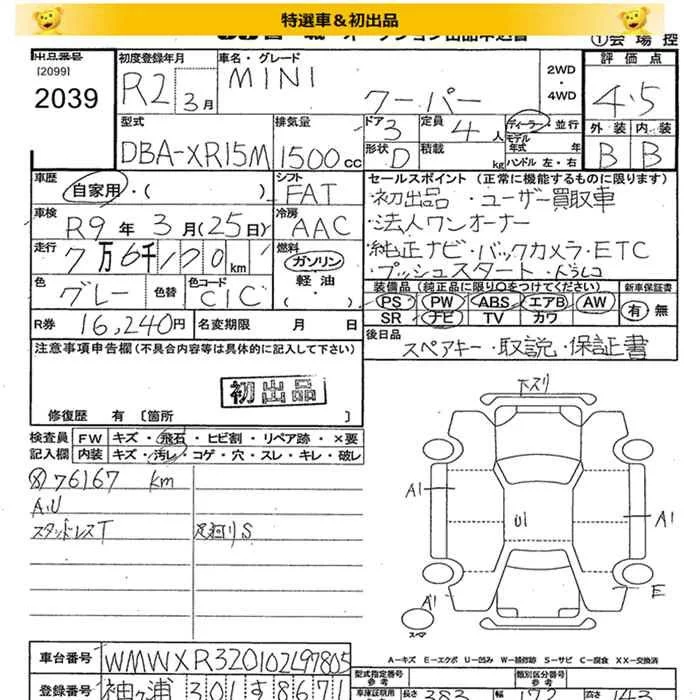 特選車＆初出品
オークション出品申込書
①会場控
出品番号
[2099]
2039
初度登録年月
R2 3月
車名・グレード
MINI
クーパー
2WD
・
4WD
評価点
4.5
型式
DBA-XR15M
排気量
1500cc
ドア
3
定員
4人
形状
D
積載
kg
ディーラー・並行
モデル
年式 年
ハンドル 左・右
外装 内装
B B
車歴
自家用・( )
シフト
FAT
セールスポイント (正常に機能するものに限ります)
・初出品 ・ユーザー買取車
・法人ワンオーナー
・純正ナビ・バックカメラ・ETC
・プッシュスタート・ドラレコ
車検
R9年3月(25日)
冷房
AAC
走行
7万6千120km
燃料
ガソリン
軽油
( )
色
グレー
色替
色コード
C1C
装備品 (純正品に限り○をつけてください)
PS PW ABS エアB AW
SR ナビ TV カワ
新車保証書
有・無
R券 16,240円
名変期限 月 日
後日品
スペアキー・取説・保証書
注意事項申告欄(不具合内容等は具体的に記入して下さい)
初出品
修復歴 有 〔箇所 〕
検査員
記入欄
FW キズ・飛石・ヒビ割・リペア跡・×要
内装 キズ・汚レ・コゲ・穴・スレ・キレ・破レ
76167 km
A.U
スタッドレスT
足廻リS
下スリ
A1
U1
A1
A1
E
スペア
A－キズ E－エクボ U－凹み W－補修跡 S－サビ C－腐食 XX－交換済
車台番号
WMWXR320102L97805
登録番号
袖ヶ浦 301 す 8671
型式指定番号
参考
類別区分番号
参考
車庫証明用
参考
長さ 383
幅 172
高さ 143